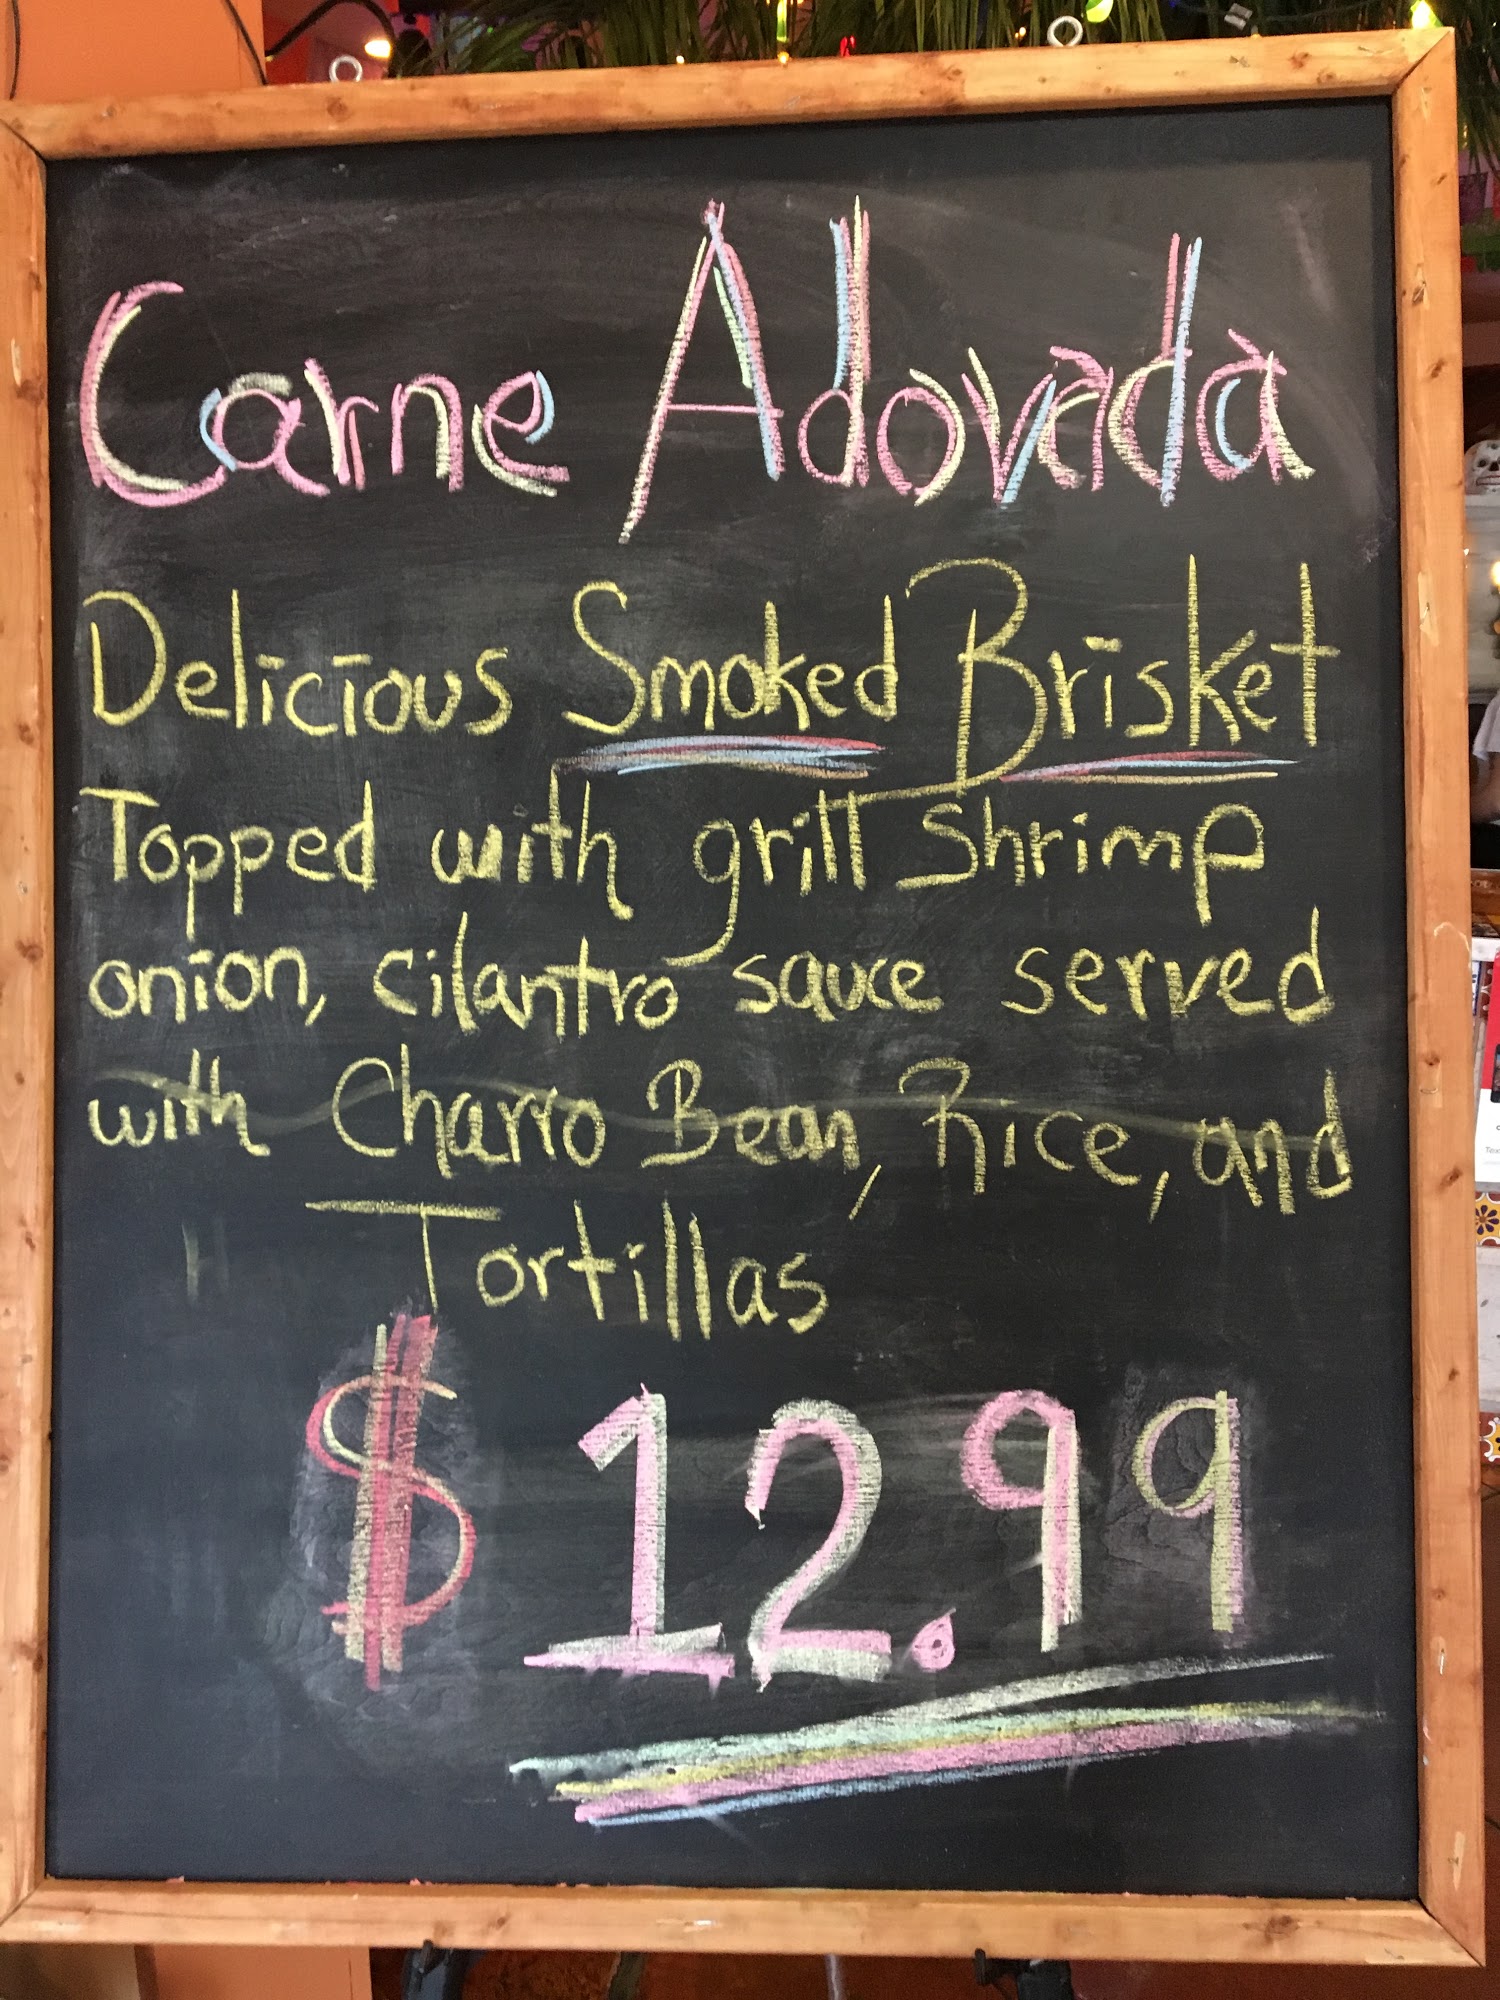 Carne Adovada
Delicious Smoked Brisket
Topped with grill shrimp
onion, cilantro sauce served
with Charro Bean, Rice, and
Tortillas
$12.99